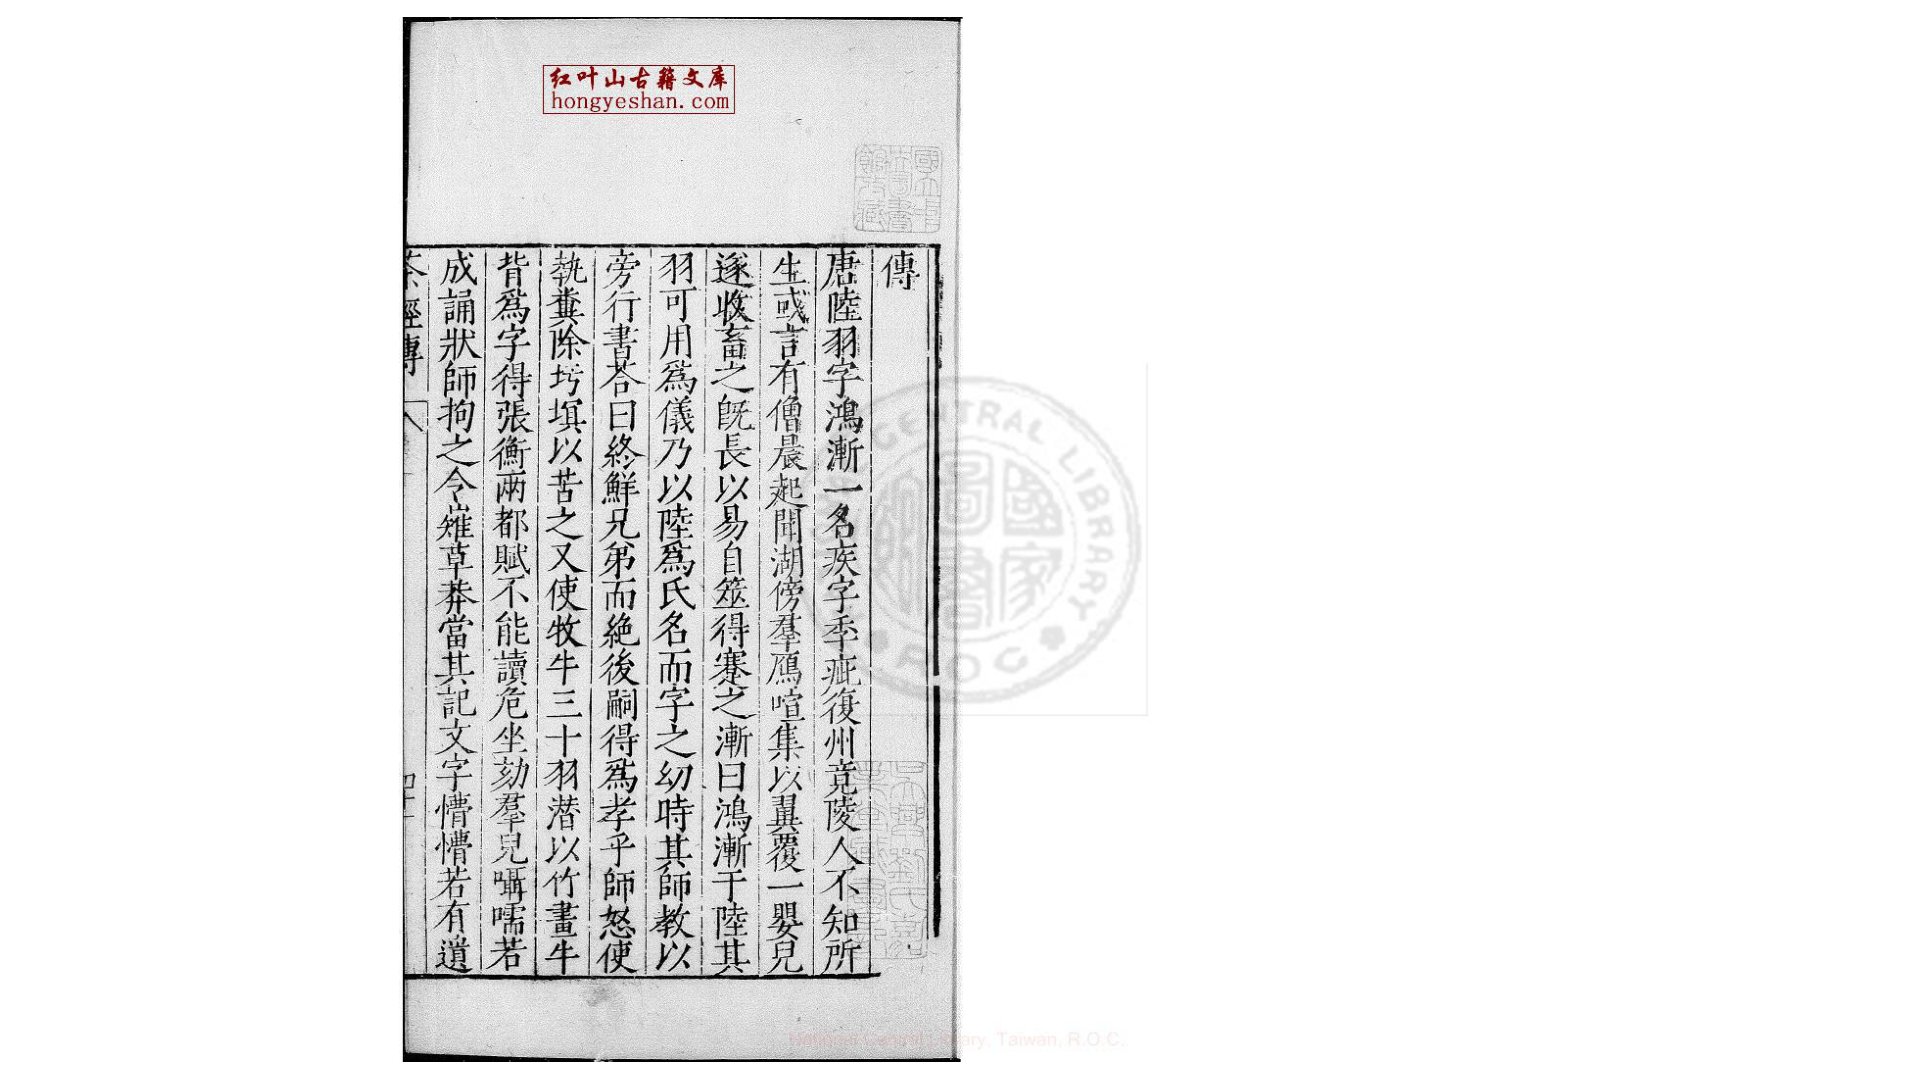 红叶山古籍文库
hongyeshan.com
傳
唐陸羽字鴻漸一名疾字季疵復州竟陵人不知所
生或言有僧晨起聞湖傍羣鴈喧集以翼覆一嬰兒
遂收畜之既長以易自筮得蹇之漸曰鴻漸于陸其
羽可用爲儀乃以陸爲氏名而字之幼時其師教以
旁行書荅曰終鮮兄弟而絶後嗣得爲孝乎師怒使
執糞除圬塓以苦之又使牧牛三十羽潜以竹畫牛
背爲字得張衡兩都賦不能讀危坐効羣兒囁嚅若
成誦狀師拘之令薙草莽當其記文字懵懵若有遺
茶經傳
CENTRAL LIBRARY
R.O.C
國家圖書
National Central Library, Taiwan, R.O.C.